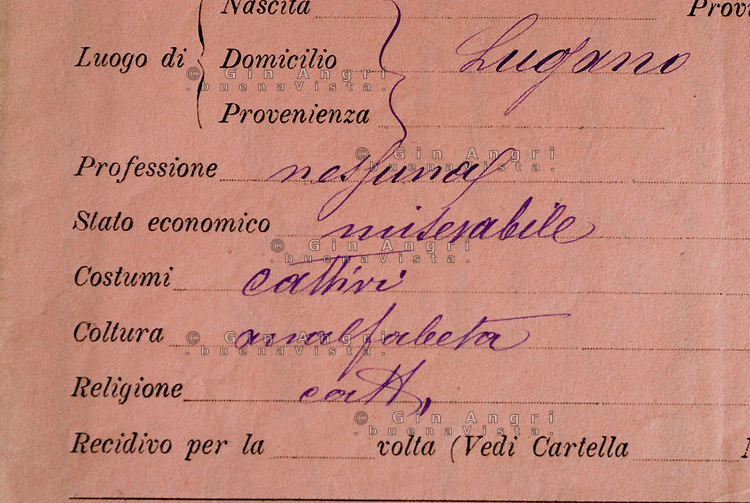 Nascita Provi
Luogo di Domicilio Lugano
Provenienza
Professione nessuna
Stato economico miserabile
Costumi cattivi
Coltura analfabeta
Religione catt.
Recidivo per la volta (Vedi Cartella N
© Gin Angri
.buenaVista.
© Gin Angri
.buenaVista.
© Gin Angri
.buenaVista.
© Gin Angri
.buenaVista.
© Gin Angri
.buenaVista.